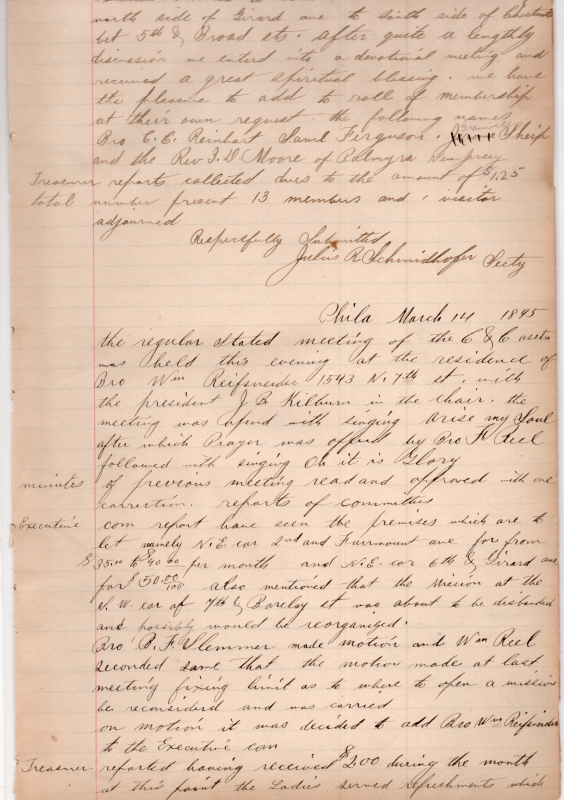 north side of Girard ave to South side of Chestnut
bet 5th & Broad sts. after quite a lengthly
discussion we enterd into a devotional meeting and
received a great spiritual blessing. we have
the pleasure to add to roll of membership
at their own request the following names
Bro C. C. Reinhart Saml Ferguson. Sheip
and the Rev I. D. Moore of Palmyra New Jersey
Treasurer reports collected dues to the amount of $1.25
total number present 13 members and 1 visitor
adjourned
Respectfully Submitted
Julius R. Schmidhofer Secty
Phila March 14 1895
the regular stated meeting of the C & C assn
was held this evening at the residence of
Bro Wm Reifsneider 1543 N. 7th st. with
the president J B Kilburn in the chair. the
meeting was opend with singing Arise my Soul
after which Prayer was offerd by Bro Reel
followed with singing Oh it is Glory
minutes of previous meeting read and approved with one
correction. reports of committees
Executive com report have seen the premises which are to
let namely N.E. cor 2nd and Fairmount ave for from
$35.00 to $40.00 per month and N.E. cor 6th & Girard ave
for $50.00/100 also mentioned that the Mission at the
S. W. cor of 7th & Barclay st was about to be disbanded
and possibly would be reorganized.
Bro B. F. Slemmer made motion and Wm Reel
seconded same that the motion made at last
meeting fixing limit as to where to open a mission
be reconsiderd and was carried
on motion it was decided to add Bro Wm Reifsneider
to the Executive com
Treasurer reported having received $2.00 during the month
at this point the Ladies served refreshments which